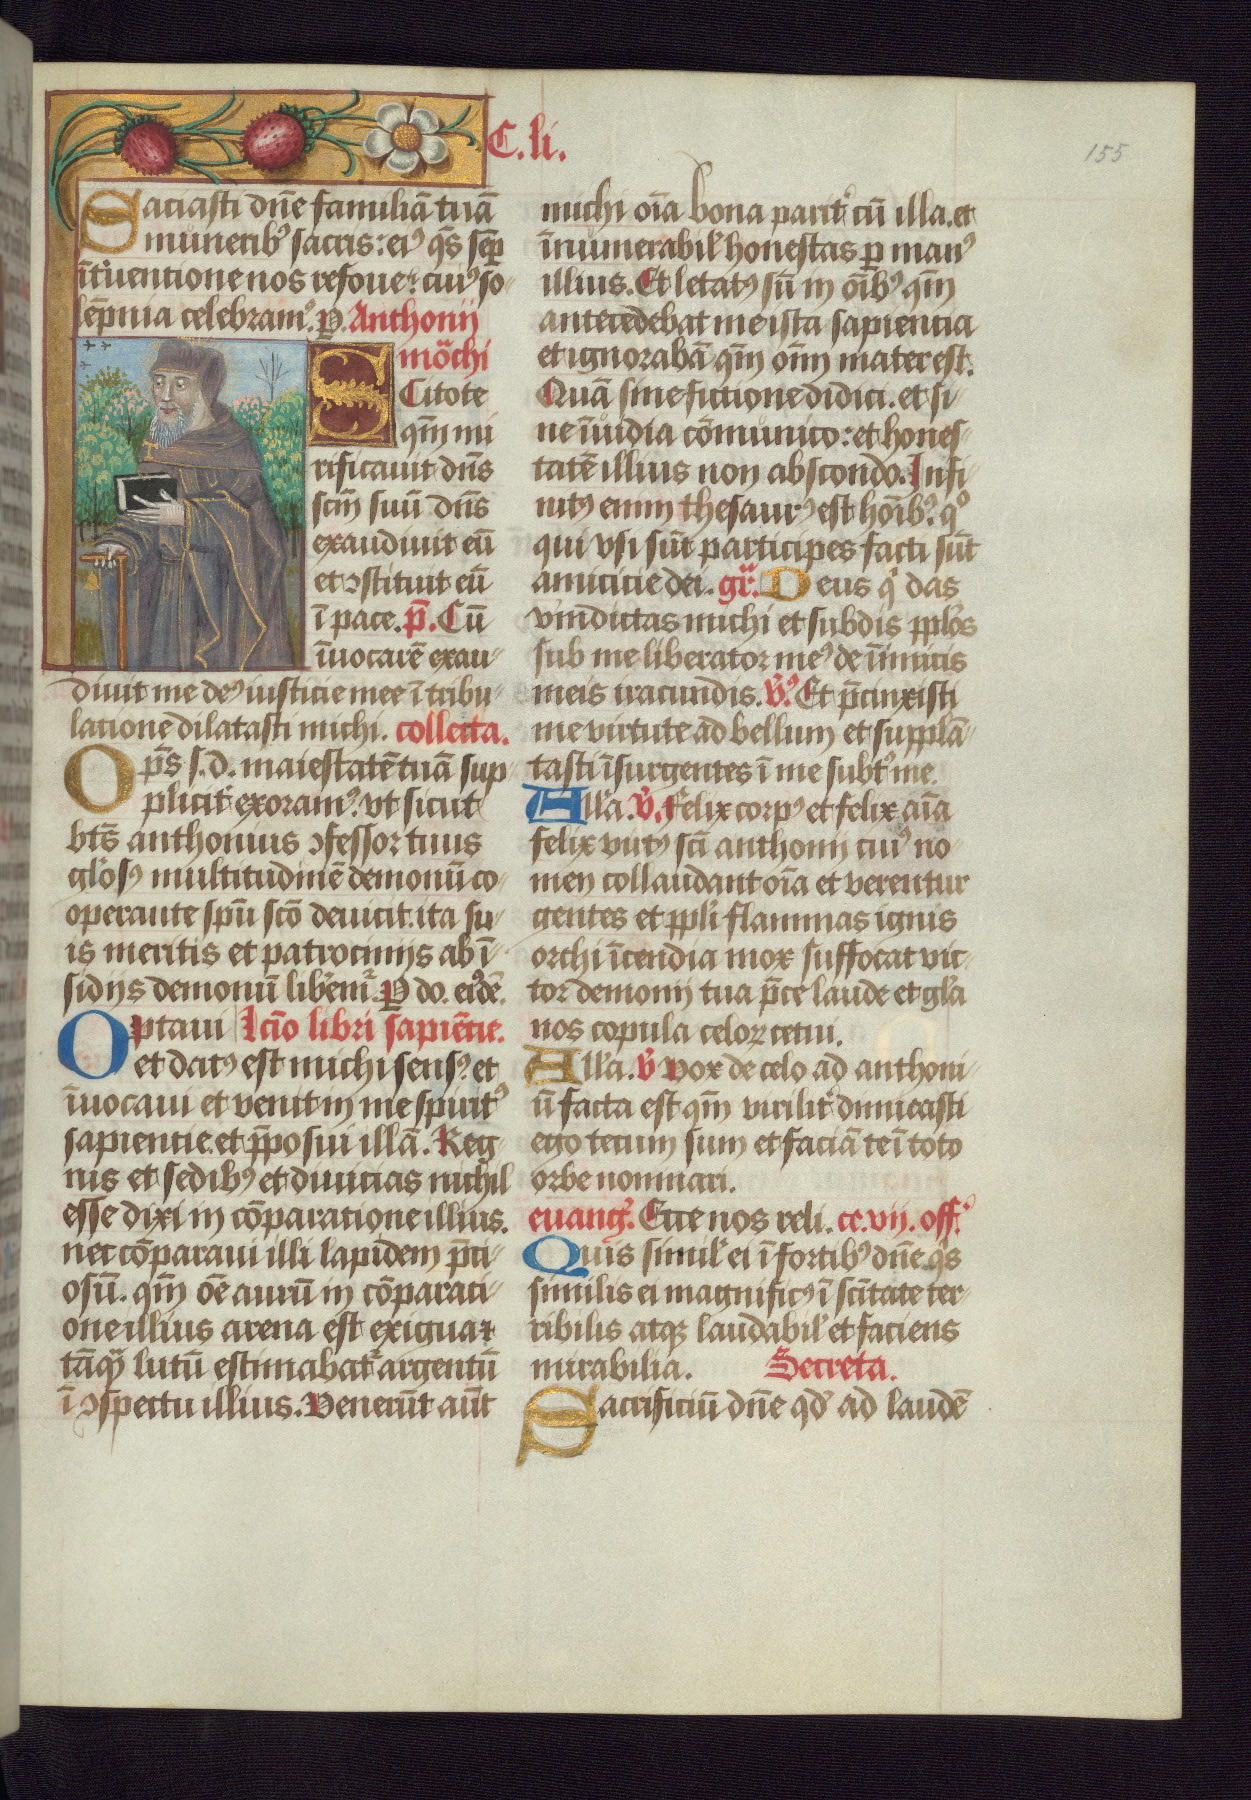 C. li.
155
Saciasti dn̄e familiā tuā
munerib⁹ sacris: ei⁹ q̄s sēp
īt'uentione nos refoue: cui⁹ so
lēpnia celebram⁹. P. Anthonij
mōchi
Scitote
qm̄ mi
rificauit dn̄s
scm̄ suū dn̄s
exaudiuit eū
et ꝯstituit eū
ī pace. p̄. Cū
īuocarē exau
diuit me de⁹ iusticie mee ī tribu
latione dilatasti michi. collecta.
Op̄s s. d. maiestatē tuā sup
plicit' exoram⁹. vt sicut
bt̄s anthonius ꝯfessor tuus
gl'os⁹ multitudinē demonū co
operante sp̄u scō deuicit. ita su
is meritis et patrocinijs ab ī
sidijs demonū lib'em̄. P do. eiꝰdē.
Optaui lcīo libri sapiētie.
et dat⁹ est michi sens⁹. et
īuocaui et venit in me spirit⁹
sapientie. et p̄posui illā. Reg
nis et sedib⁹ et diuicias nichil
esse dixi in cōparatione illius.
nec cōparaui illi lapidem p̄ci
osū. qm̄ oē aurū in cōparati
one illius arena est exigua. ⁊
tāq̄ lutū estimabat̄ argentū
ī ꝯspectu illius. Venerūt aūt
michi oīa bona parit' cū illa. et
īnumerabil' honestas p man⁹
illius. Et letat⁹ sū in oīb⁹ qm̄
antecedebat me ista sapiencia
et ignorabā qm̄ oīm mater est.
Quā sine fictione didici. et si
ne īuidia cōmunico: et hones
tatē illius non abscondo. Infi
nit⁹ enim thesaur⁹ est hoīb⁹. qͦ
qui vsi sūt participes facti sūt
amicicie dei. gr̄. Deus q̇ das
vindictas michi et subdis ppl'os
sub me liberator me⁹ de inimicis
meis iracundis. V⁹. Et p̄cinxisti
me virtute ad bellum et supplā
tasti īsurgentes ī me subt⁹ me.
All'a. V. Felix corp⁹ et felix aīa
felix virt⁹ scī anthonij cui⁹ no
men collaudant oīa et verentur
gentes et ppl'i flammas ignis
orchi īcendia mox suffocat vic
tor demonij tua p̄ce laude et gl'a
nos copula celoꝝ cetui.
All'a. V Vox de celo ad anthoni
ū facta est qm̄ virilit' dimicasti
ego tecum sum et faciā te ī toto
orbe nominari.
euang'. Ecce nos reli. ce. vij. off.
Quis simil' ei ī fortib⁹ dn̄e q̇s
similis ei magnific⁹ ī scītate ter
ribilis atqꝫ laudabil' et faciens
mirabilia. Secreta.
Sacrificiū dn̄e qd' ad laudē